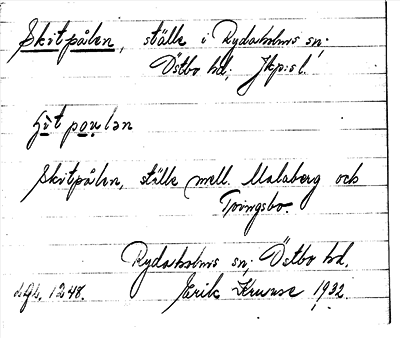 Skitpålen, ställe i Rydaholms sn;
Östbo hd; Jkp:s l.
skitpålen, ställe mell. Malaberg och
Tvingsbo.
Rydaholms sn; Östbo hd.
1248. Erik 1932